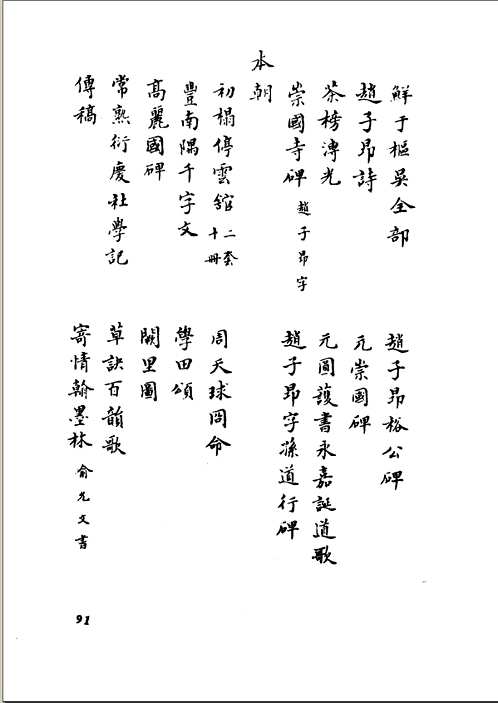 鮮于樞吳全部
趙子昂裕公碑
趙子昂詩
元崇國碑
茶榜溥光
元圓護書永嘉誕道歌
崇國寺碑 趙子昂字
趙子昂字孫道行碑
本朝
初榻停雲館 二套十冊
周天球冏命
豐南隅千字文
學田頌
高麗國碑
闕里圖
常熟衍慶社學記
草訣百韻歌
傳稿
寄情翰墨林 俞允文書
91